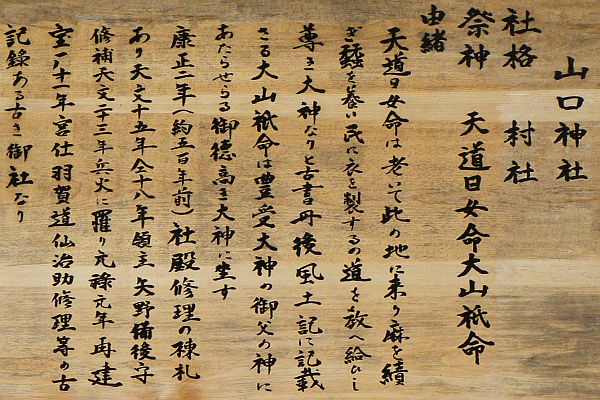 山口神社
社格 村社
祭神 天道日女命大山祇命
由緒
天道日女命は老いて此の地に来り麻を績
ぎ蚕を養い民に衣を製するの道を教へ給ひし
尊き大神なりと古書丹後風土記に記載
さる大山祇命は豊受大神の御父の神に
あたらせらる御徳高き大神に坐す
康正二年(約五百年前)社殿修理の棟札
あり天文十五年仝十八年領主矢野備後守
修補天文二十三年兵火に罹り元祿元年再建
宝八十一年宮仕羽賀道仙治助修理等の古
記録ある古き御社なり